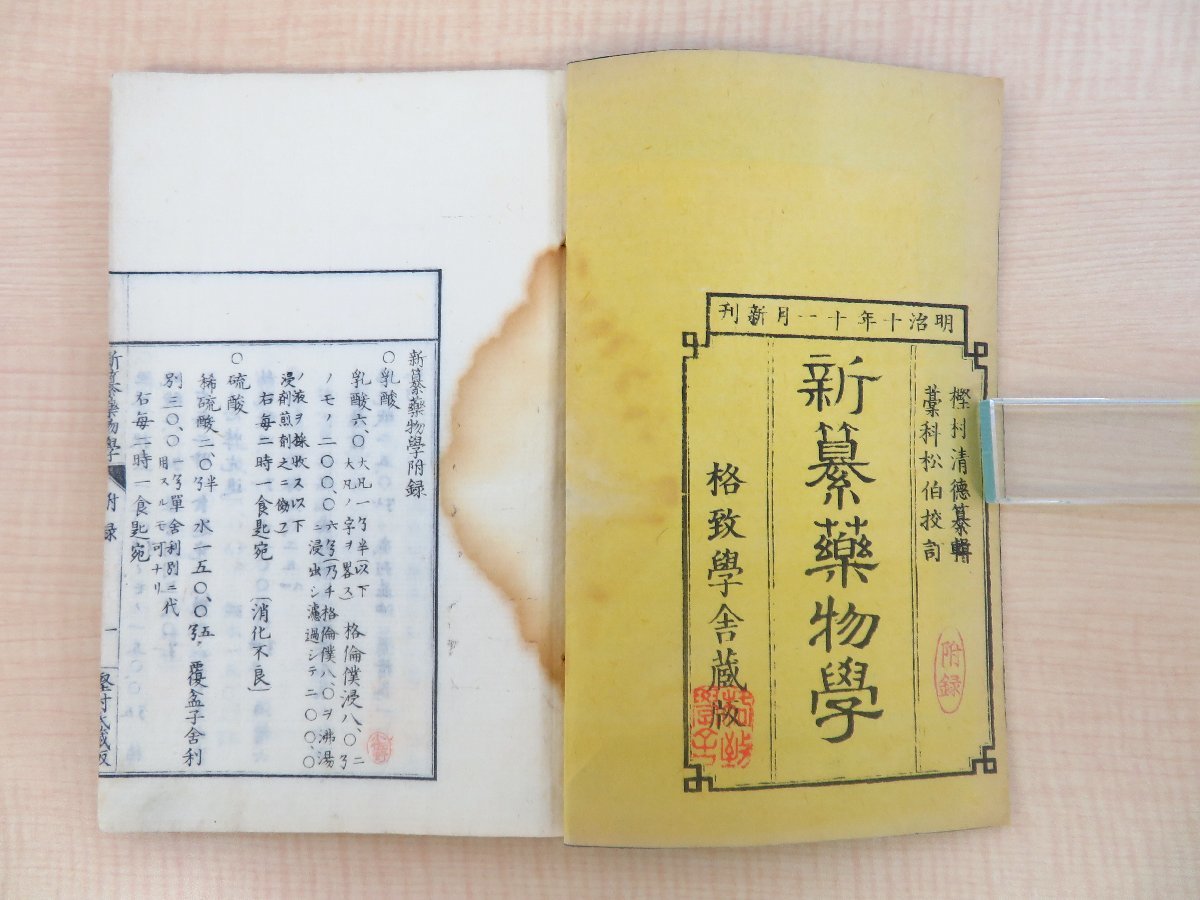 明治十年十一月新刊
樫村清徳纂輯
藁科松伯挍訂
新纂藥物學
附録
格致學舎蔵版
新纂藥物學附録
○乳酸
乳酸六、〇 大凡一ᄝ半(以下大凡ノ字ヲ畧ス) 格倫僕浸八、〇 二
ノモノ、二〇〇、〇 六ᄝ(乃チ格倫僕八、〇ヲ沸湯ニ浸出シ濾過シテ二〇〇、〇
ノ液ヲ採收ス以下浸剤煎剤之ニ傚フ)
右毎二時一食匙宛 (消化不良)
○硫酸
稀硫酸二、〇 半 水一五〇、〇 五 覆盆子舎利
別三〇、〇 一 單舎利別ニ代用スルモ可ナリ
右毎二時一食匙宛
新纂藥物學 附録 一